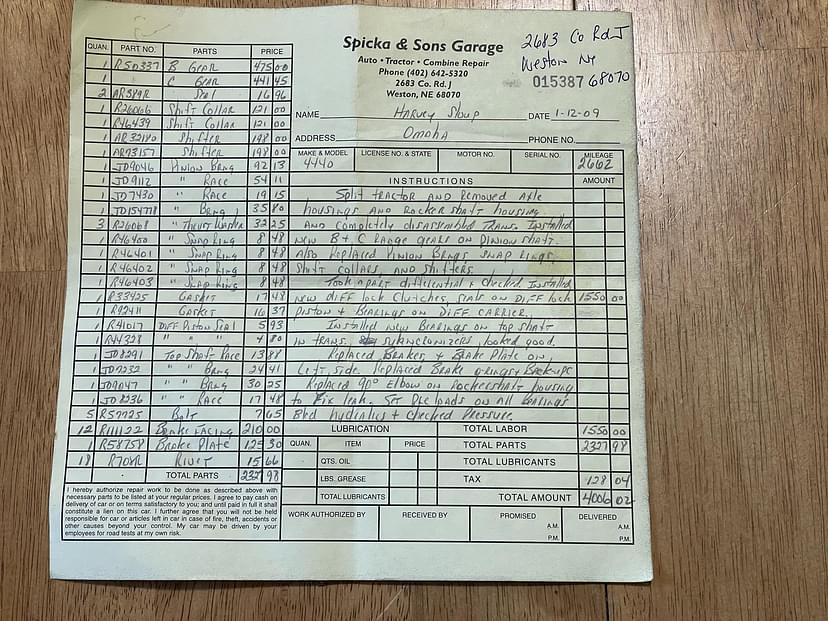 Spicka & Sons Garage
Auto • Tractor • Combine Repair
Phone (402) 642-5320
2683 Co. Rd. J
Weston, NE 68070
2683 Co Rd J
Weston Ne
68070
015387
NAME Harvey DATE 1-12-09
ADDRESS Omaha PHONE NO.
MAKE & MODEL LICENSE NO. & STATE MOTOR NO. SERIAL NO. MILEAGE
4440 2662
QUAN. PART NO. PARTS PRICE
1 R50337 B Gear 475 00
1 C Gear 441 45
2 Seal 16 96
1 R26066 Shift Collar 121 00
1 R46439 Shift Collar 121 00
1 Shifter 198 00
1 AR73157 Shifter 198 00
1 JD9046 Pinion Brng 92 13
1 JD9112 " Race 54 11
1 JD7430 " Race 19 15
1 " Brng 35 80
3 R26068 " Thrust Washer 32 25
1 R46400 " Snap Ring 8 48
1 R46401 " Snap Ring 8 48
1 R46402 " Snap Ring 8 48
1 R46403 " Snap Ring 8 48
1 R33425 Gasket 17 48
1 R92411 Gasket 16 37
1 R41017 Diff Piston Seal 5 93
1 R44328 " " " 4 80
1 JD8291 Top Shaft Race 13 88
1 JD7232 " " Brng 24 41
1 JD9047 " " Brng 30 25
1 JD8236 " " Race 17 48
5 R57725 Bolt 7 65
12 R111122 Brake Facing 210 00
1 R58758 Brake Plate 125 30
18 Rivet 15 66
TOTAL PARTS 2327 98
INSTRUCTIONS AMOUNT
Split tractor and Removed Axle
housings and rocker shaft housing
and completely disassembled trans. Installed
new B + C Range gears on pinion shaft.
Also Replaced Pinion Brngs, Snap Rings,
Shift collars, and shifters.
Took apart differential + checked. Installed
new diff lock clutches, seals on diff lock 1550 00
piston + Bearings on Diff. Carrier.
Installed new Bearings on top shaft
in trans. synancronizers looked good.
Replaced Brakes, + Brake Plate on
Left side. Replaced Brake o-rings + Backups
Replaced 90° Elbow on Rockershaft housing
to fix leak. Set Preloads on all Bearings
Bled hydralics + checked Pressure.
LUBRICATION TOTAL LABOR 1550 00
QUAN. ITEM PRICE TOTAL PARTS 2327 98
QTS. OIL TOTAL LUBRICANTS
LBS. GREASE TAX 128 04
TOTAL LUBRICANTS TOTAL AMOUNT 4006 02
WORK AUTHORIZED BY RECEIVED BY PROMISED DELIVERED
A.M. A.M.
P.M. P.M.
I hereby authorize repair work to be done as described above with
necessary parts to be listed at your regular prices. I agree to pay cash on
delivery of car or on terms satisfactory to you; and until paid in full it shall
constitute a lien on this car. I further agree that you will not be held
responsible for car or articles left in car in case of fire, theft, accidents or
other causes beyond your control. My car may be driven by your
employees for road tests at my own risk.